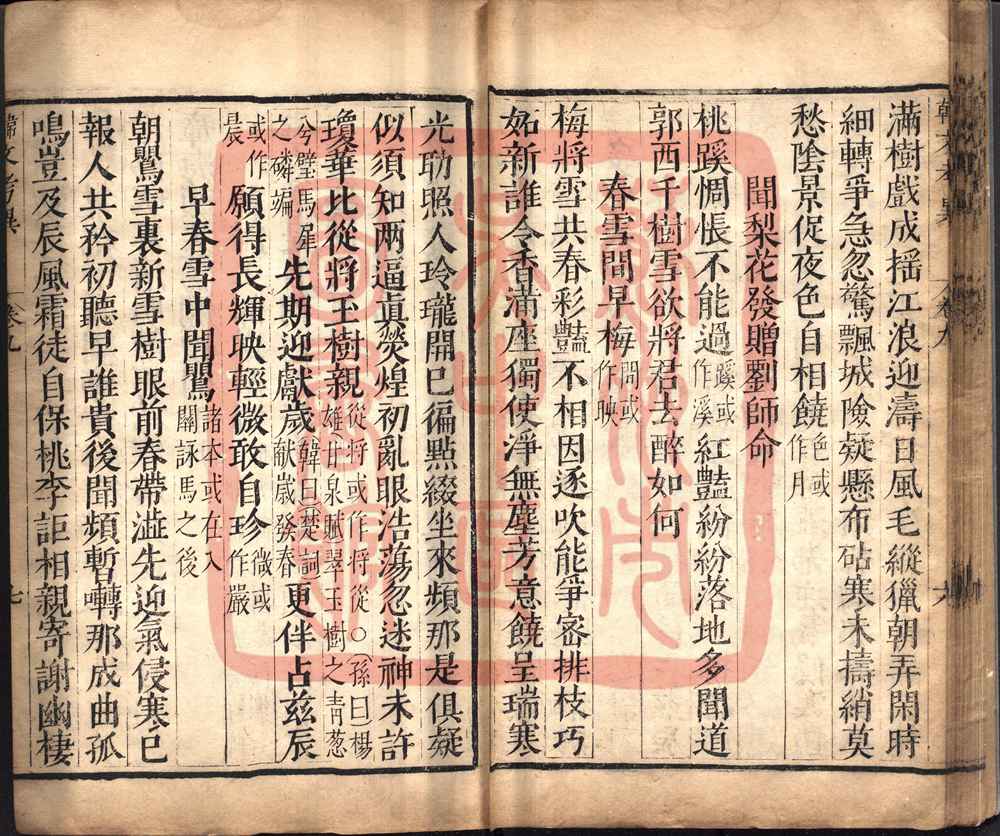 韓文考異　卷九　六
滿樹戲成搖江浪迎濤日風毛縱獵朝弄閑時
細轉爭急忽驚飄城險疑懸布砧寒未擣綃莫
愁陰景促夜色自相饒色或作月
聞梨花發贈劉師命
桃蹊惆悵不能過蹊或作溪紅豔紛紛落地多聞道
郭西千樹雪欲將君去醉如何
春雪間早梅間或作映
梅將雪共春彩豔不相因逐吹能爭密排枝巧
妬新誰令香滿座獨使淨無塵芳意饒呈瑞寒
光助照人玲瓏開已徧點綴坐來頻那是俱疑
似須知兩逼眞熒煌初亂眼浩蕩忽迷神未許
瓊華比從將玉樹親從將或作將從○孫曰楊雄甘泉賦翠玉樹之青葱
兮璧馬犀之磷㻞先期迎獻歲韓曰楚詞獻歲發春更伴占兹辰
或作晨願得長輝映輕微敢自珍微或作嚴
早春雪中聞鸎諸本或在入關詠馬之後
朝鸎雪裏新雪樹眼前春帶澁先迎氣侵寒已
報人共矜初聽早誰貴後聞頻暫囀那成曲孤
鳴豈及辰風霜徒自保桃李詎相親寄謝幽棲
韓文考異　卷九　七